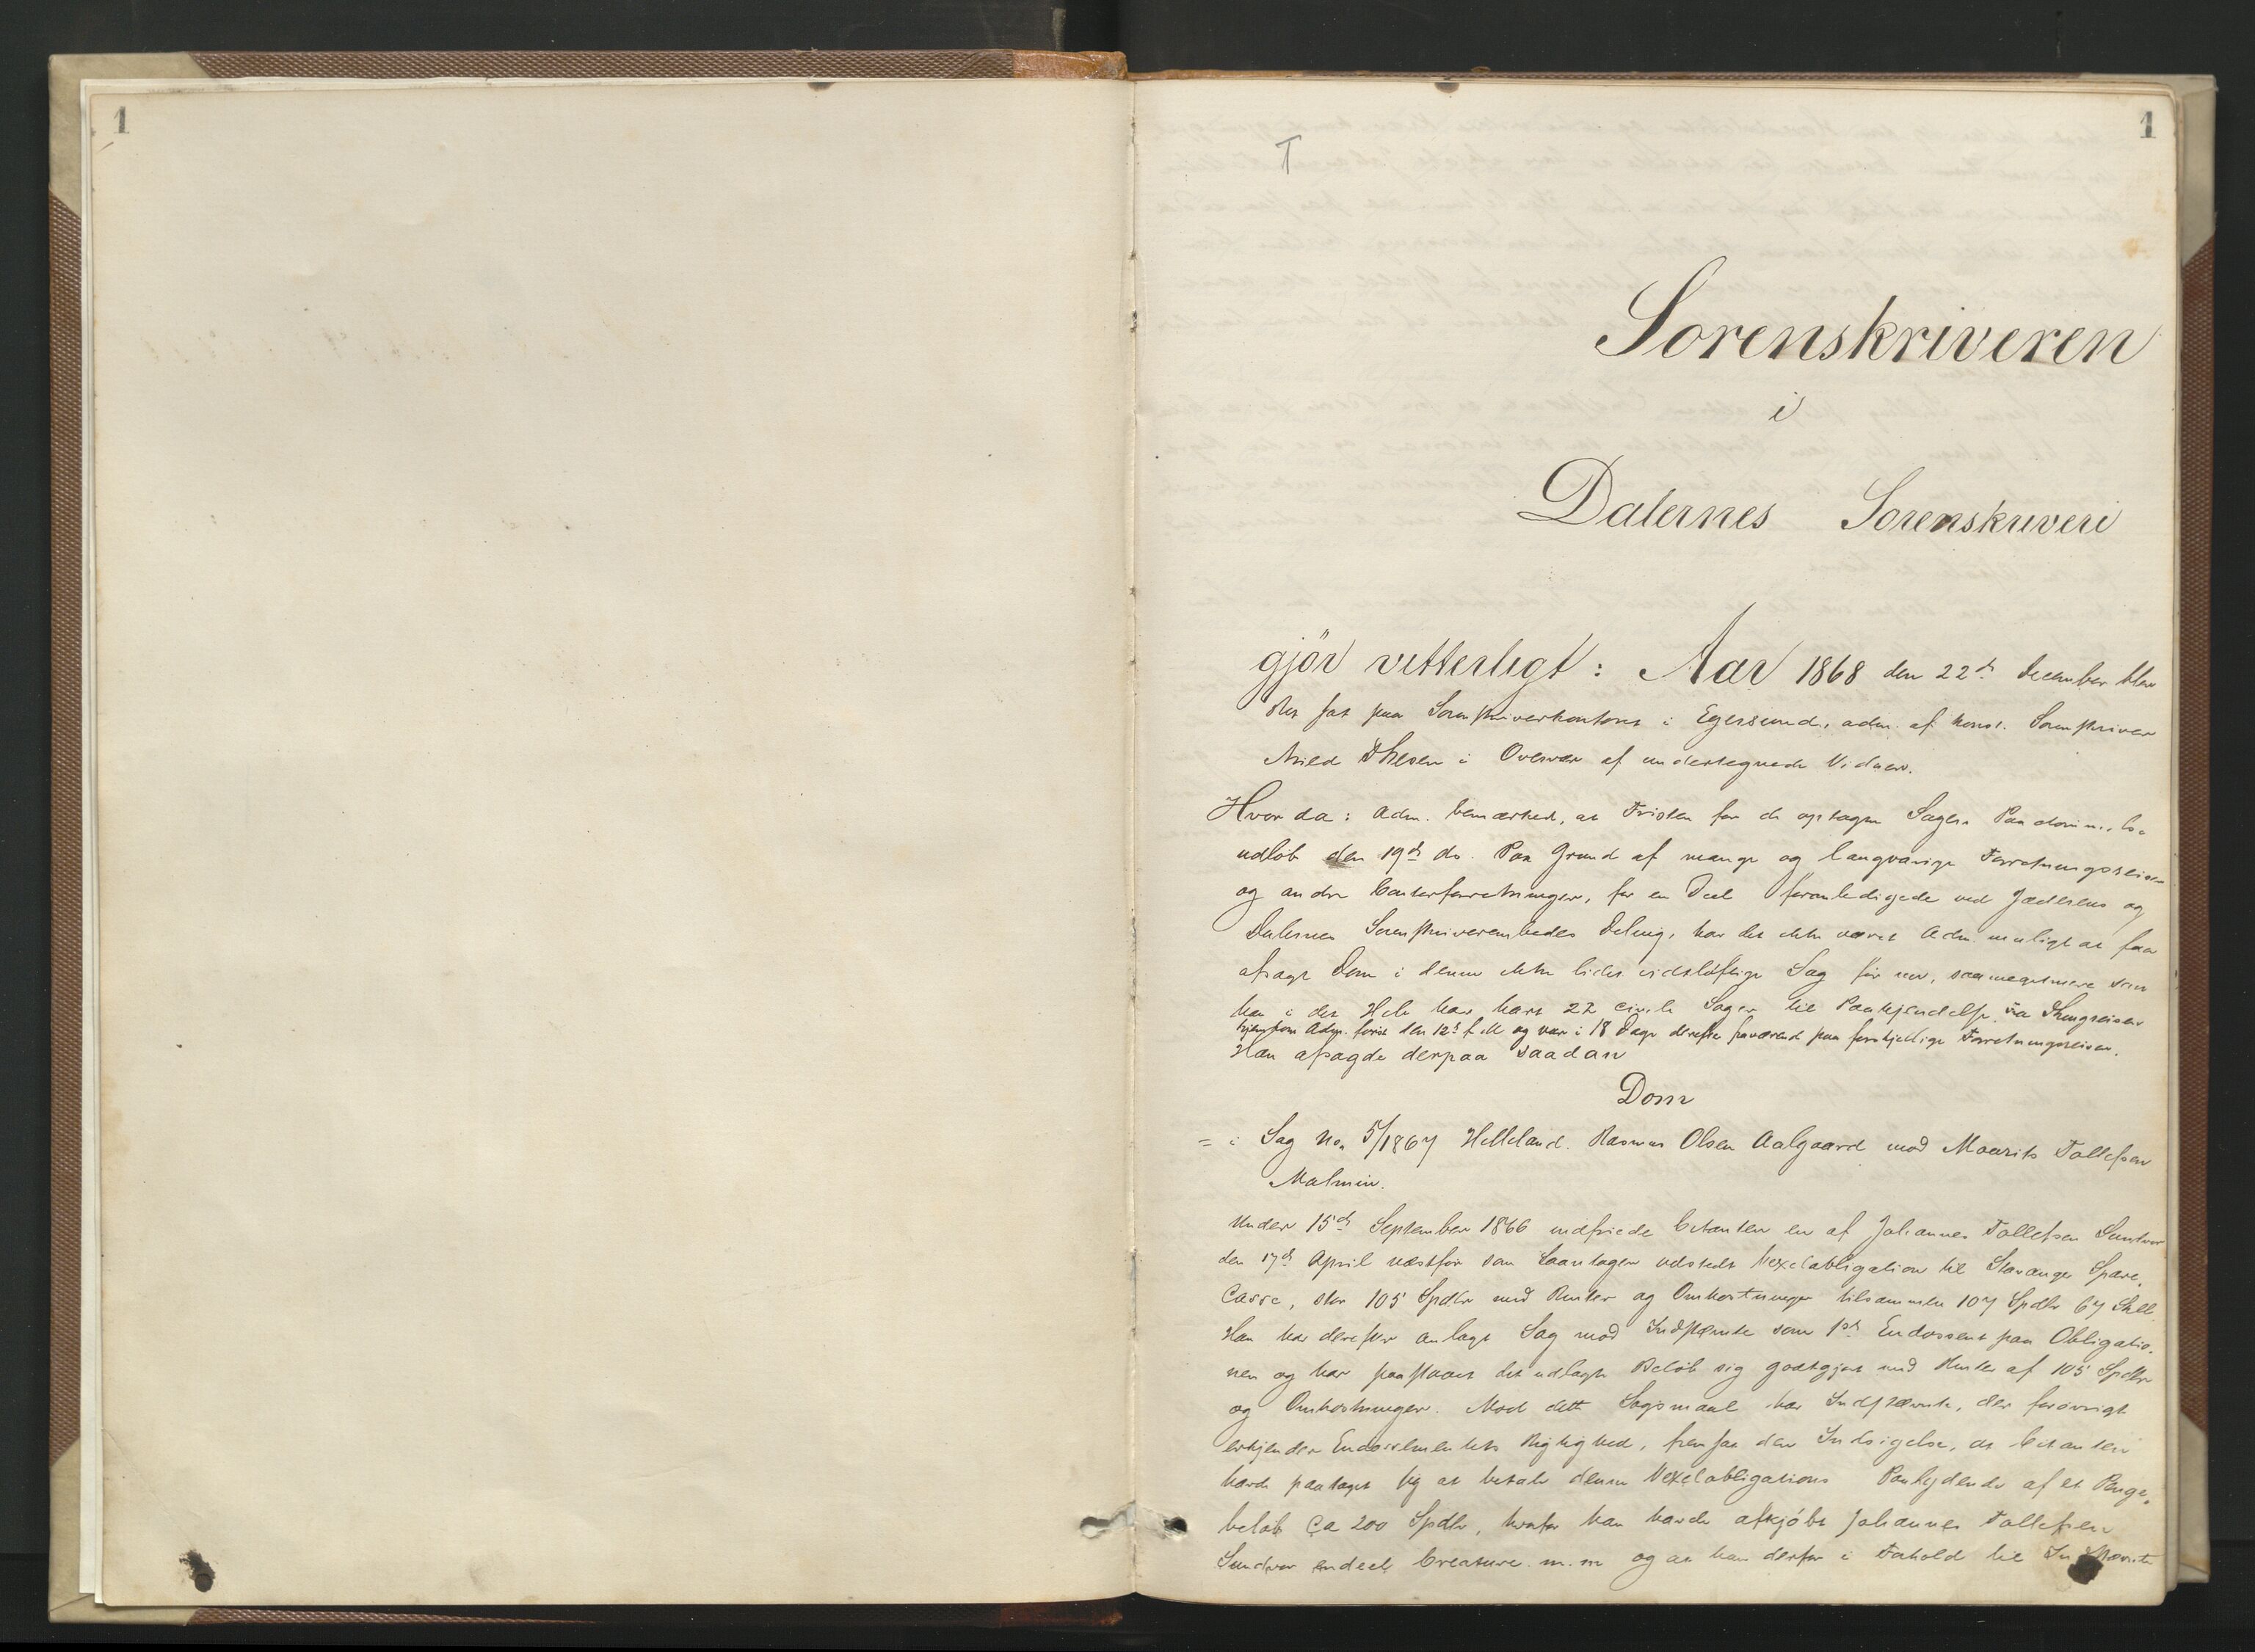 1
1
T
Sorenskriveren
i
Dalernes Sorenskriveri
gjör vitterligt: Aar 1868 den 22de December blev
Ret sat paa Sorenskriverkontoret i Egersund, adm. af konst. Sorenskriver
Thesen i Overvær af undertegnede Vidner.
Hvor da: Adm. bemærked, at Fristen for de optagne Sagers Paadømmelse
udløb den 19de ds. Paa Grund af mange og langvarige Forretningsreiser
og andre Contorforretninger, for en Deel foranledigede ved Jæderens og
Dalernes Sorenskriverembedes Deling, har det ikke været Adm. muligt at faa
afsagt Dom i denne ikke lidet vidtløftige Sag før nu, saameget mere som
han i det Hele har havt 22 civile Sager til Paakjendelse. Fra Thingreisen
hjemkom Adm. først den 12te f. M og var i 18 Dage derefter fraværende paa forskjellige Forretningsreiser.
Han afsagde derpaa saadan
Dom
= i Sag No. 5/1867 Helleland. Rasmus Olsen Aalgaard mod Maurits Tollefsen
Malmin.
Under 15de September 1866 indfriede Citanten en af Johannes Tollefsen
den 17de April næstfør som Laantager udstedt Vexelobligation til Stavanger Spare-
Casse, stor 105 Spdlr med Renter og Omkostninger tilsammen 107 Spdlr 67 Skill
Han har derefter anlagt Sag mod Indstævnte som 1ste Endossent paa Obligatio-
nen og har paastaaet det udlagte Beløb sig godtgjort med Renter af 105 Spdlr
og Omkostninger. Mod dette Søgsmaal har Indstævnte, der forøvrigt
erkjender Endossementets Rigtighed, fremsat den Indsigelse, at Citanten
havde paataget sig at betale denne Vexelobligations Paalydende af et Penge-
beløb Ca 200 Spdlr, hvorfor han havde afkjöbt Johannes Tollefsen
endeel Creature m. m og at han derfor i Forhold til Indstævnte